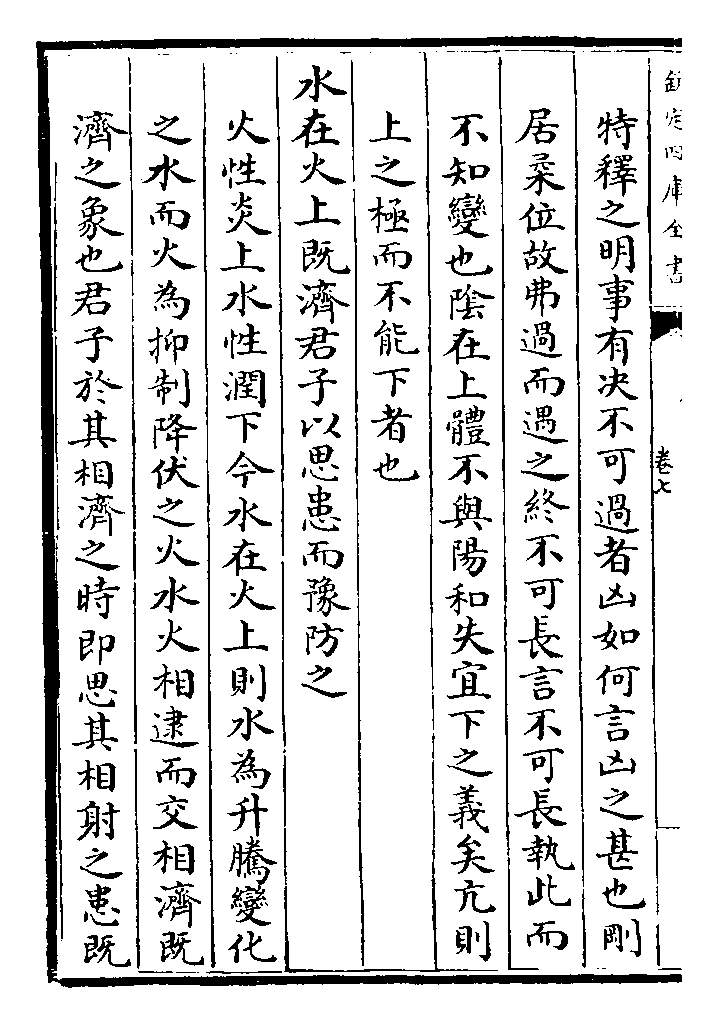 欽定四庫全書
卷七
特釋之明事有决不可過者凶如何言凶之甚也剛
居柔位故弗過而遇之終不可長言不可長執此而
不知變也陰在上體不與陽和失宜下之義矣亢則
上之極而不能下者也
水在火上既濟君子以思患而豫防之
火性炎上水性潤下今水在火上則水為升騰變化
之水而火為抑制降伏之火水火相逮而交相濟既
濟之象也君子於其相濟之時即思其相射之患既